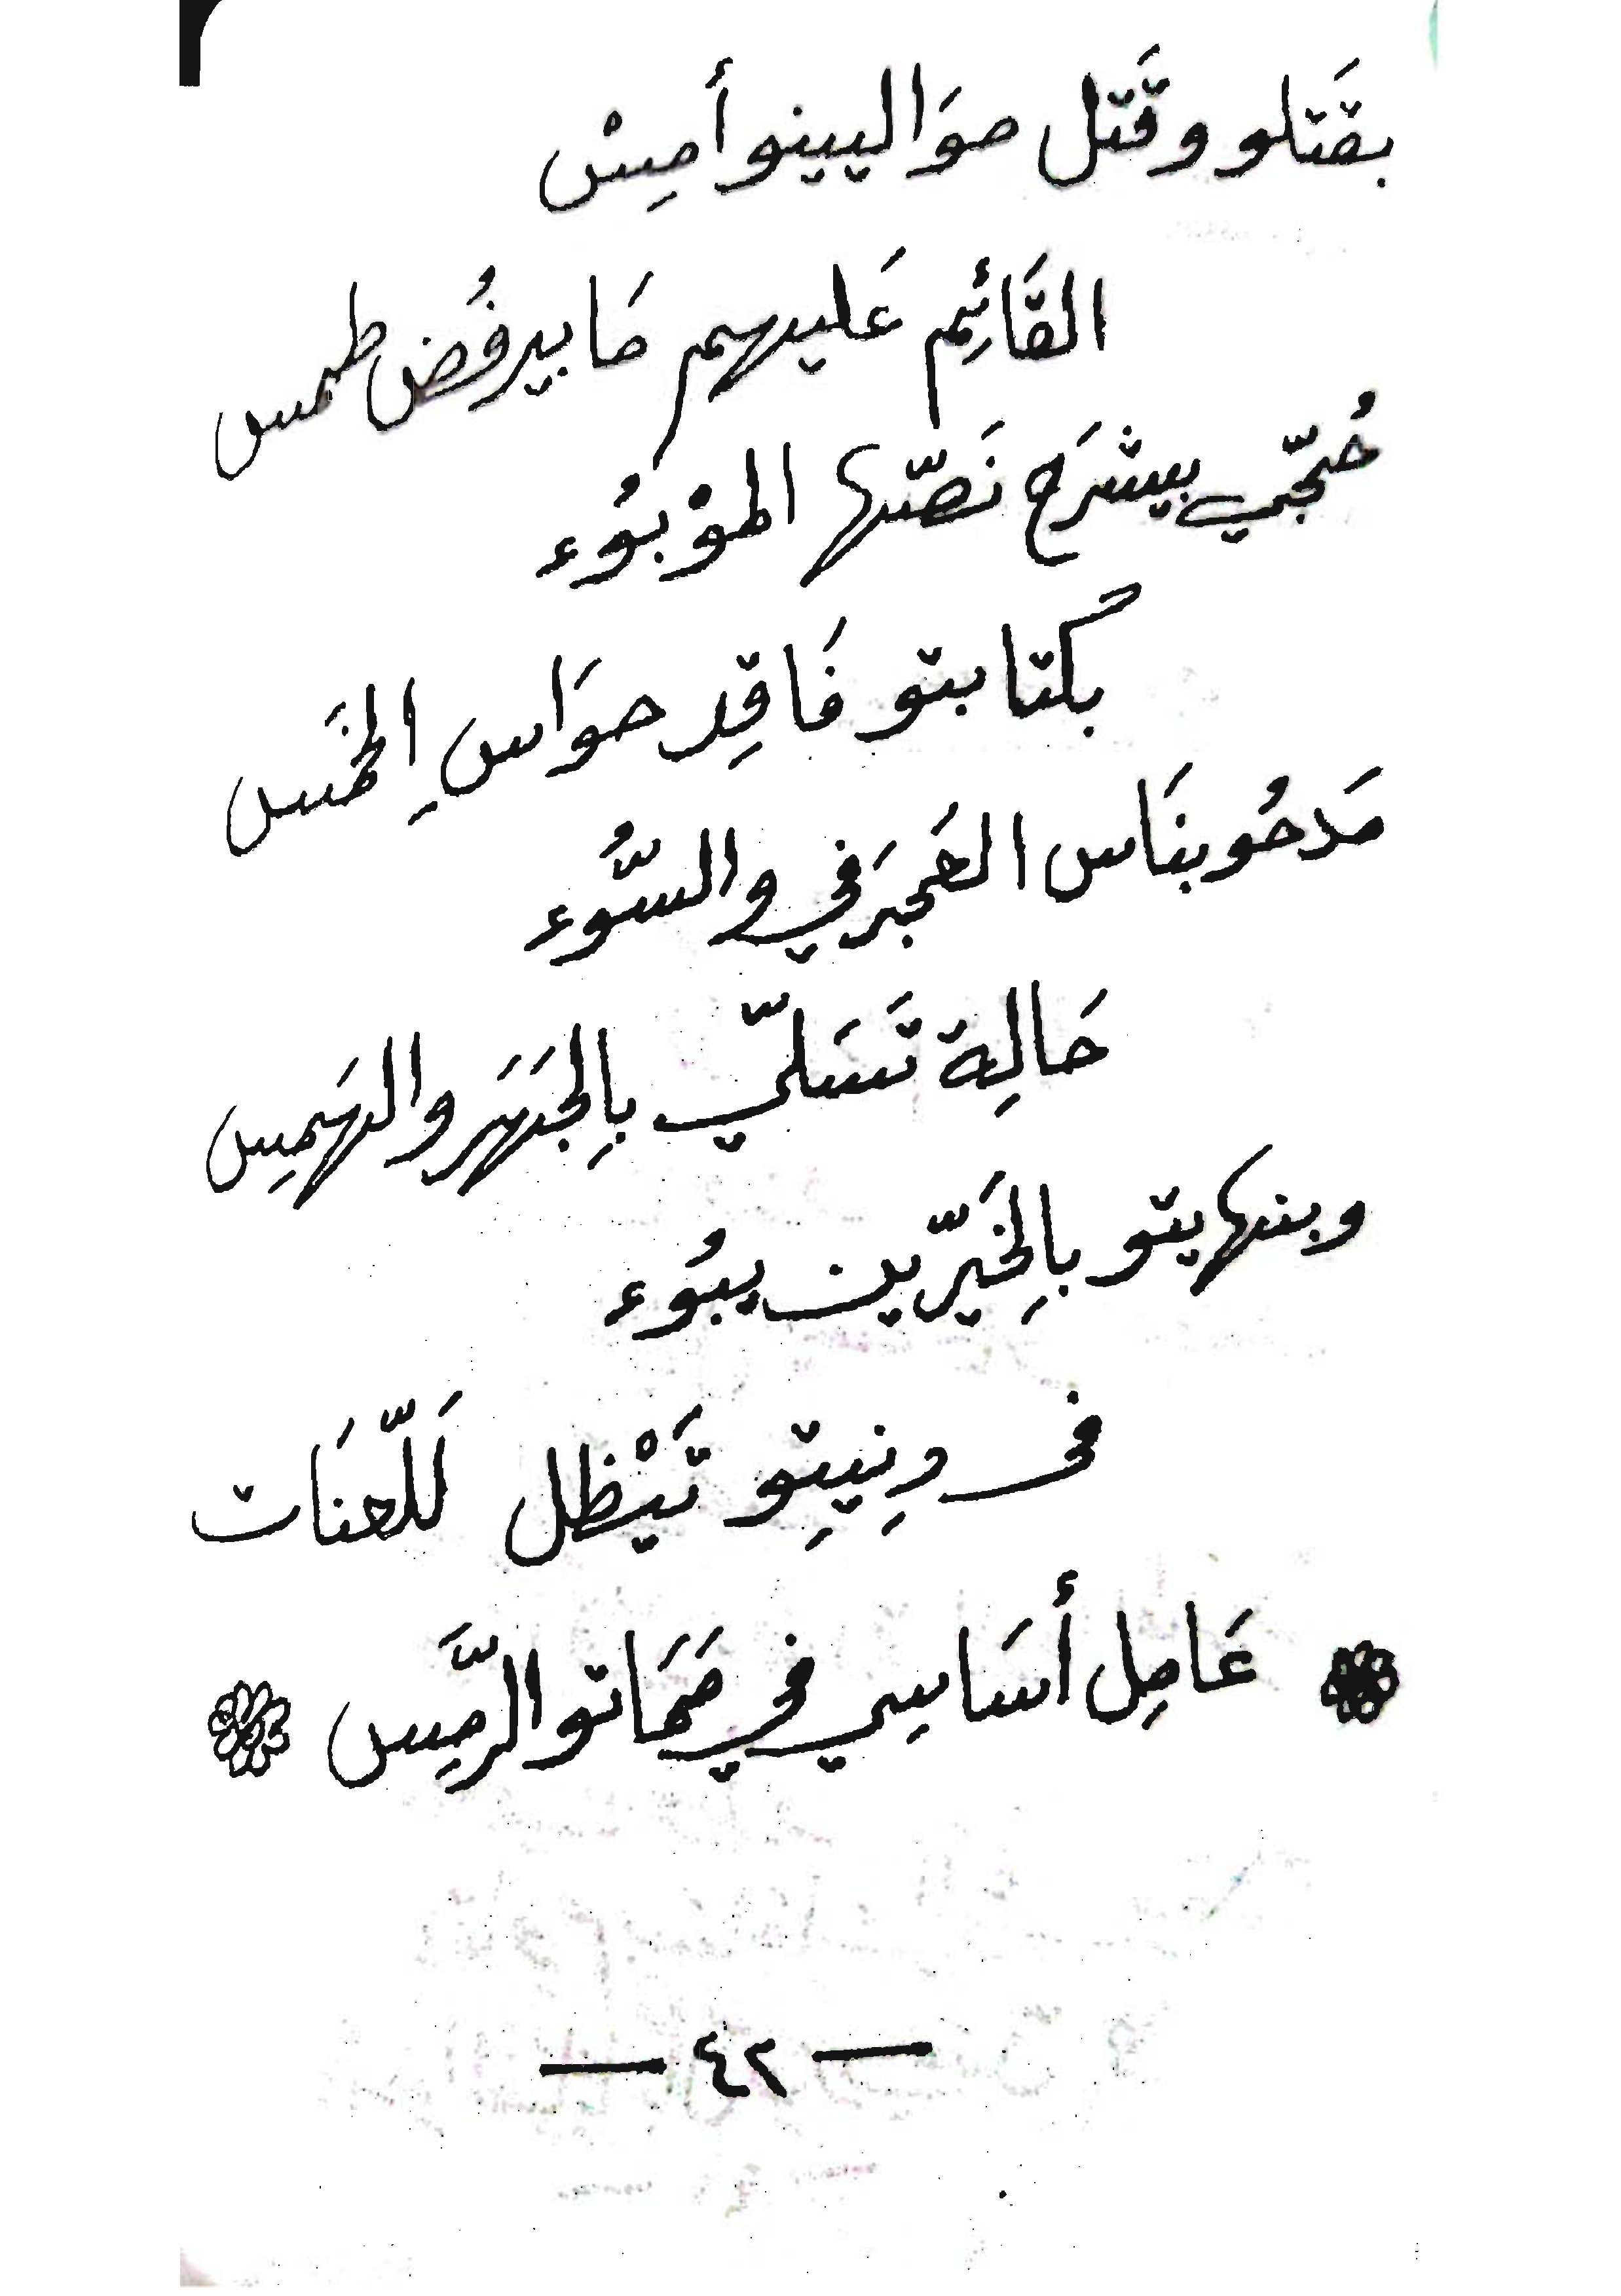 بقَتلو وقَتل موَاليينو أمِسْ
القَائِم عَليهم مَا بيرفُض طمس
حُجّي بيشرَح نَصّها الموْبوُء
بكتابتو فَاقِد حوَاسِ الخَمس
مَدحُو بنَاس العَجرَفي والسّوُء
حَالِة تَسَلّي بِالجَهَر والهَمِس
وبنهايتو بِالخَيّرين يبوُء
في دِنيِتو تَيْظل لَلّعنَات
عَامِل أسَاسِي في مَمَاتو الرّمِس
— ٤٢ —